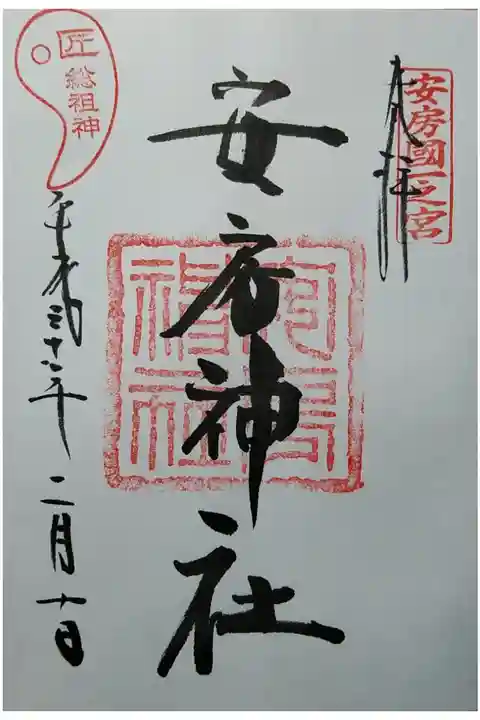 安房國一之宮
奉拝
安房神社
匠
総祖神
平成三十一年 二月十日